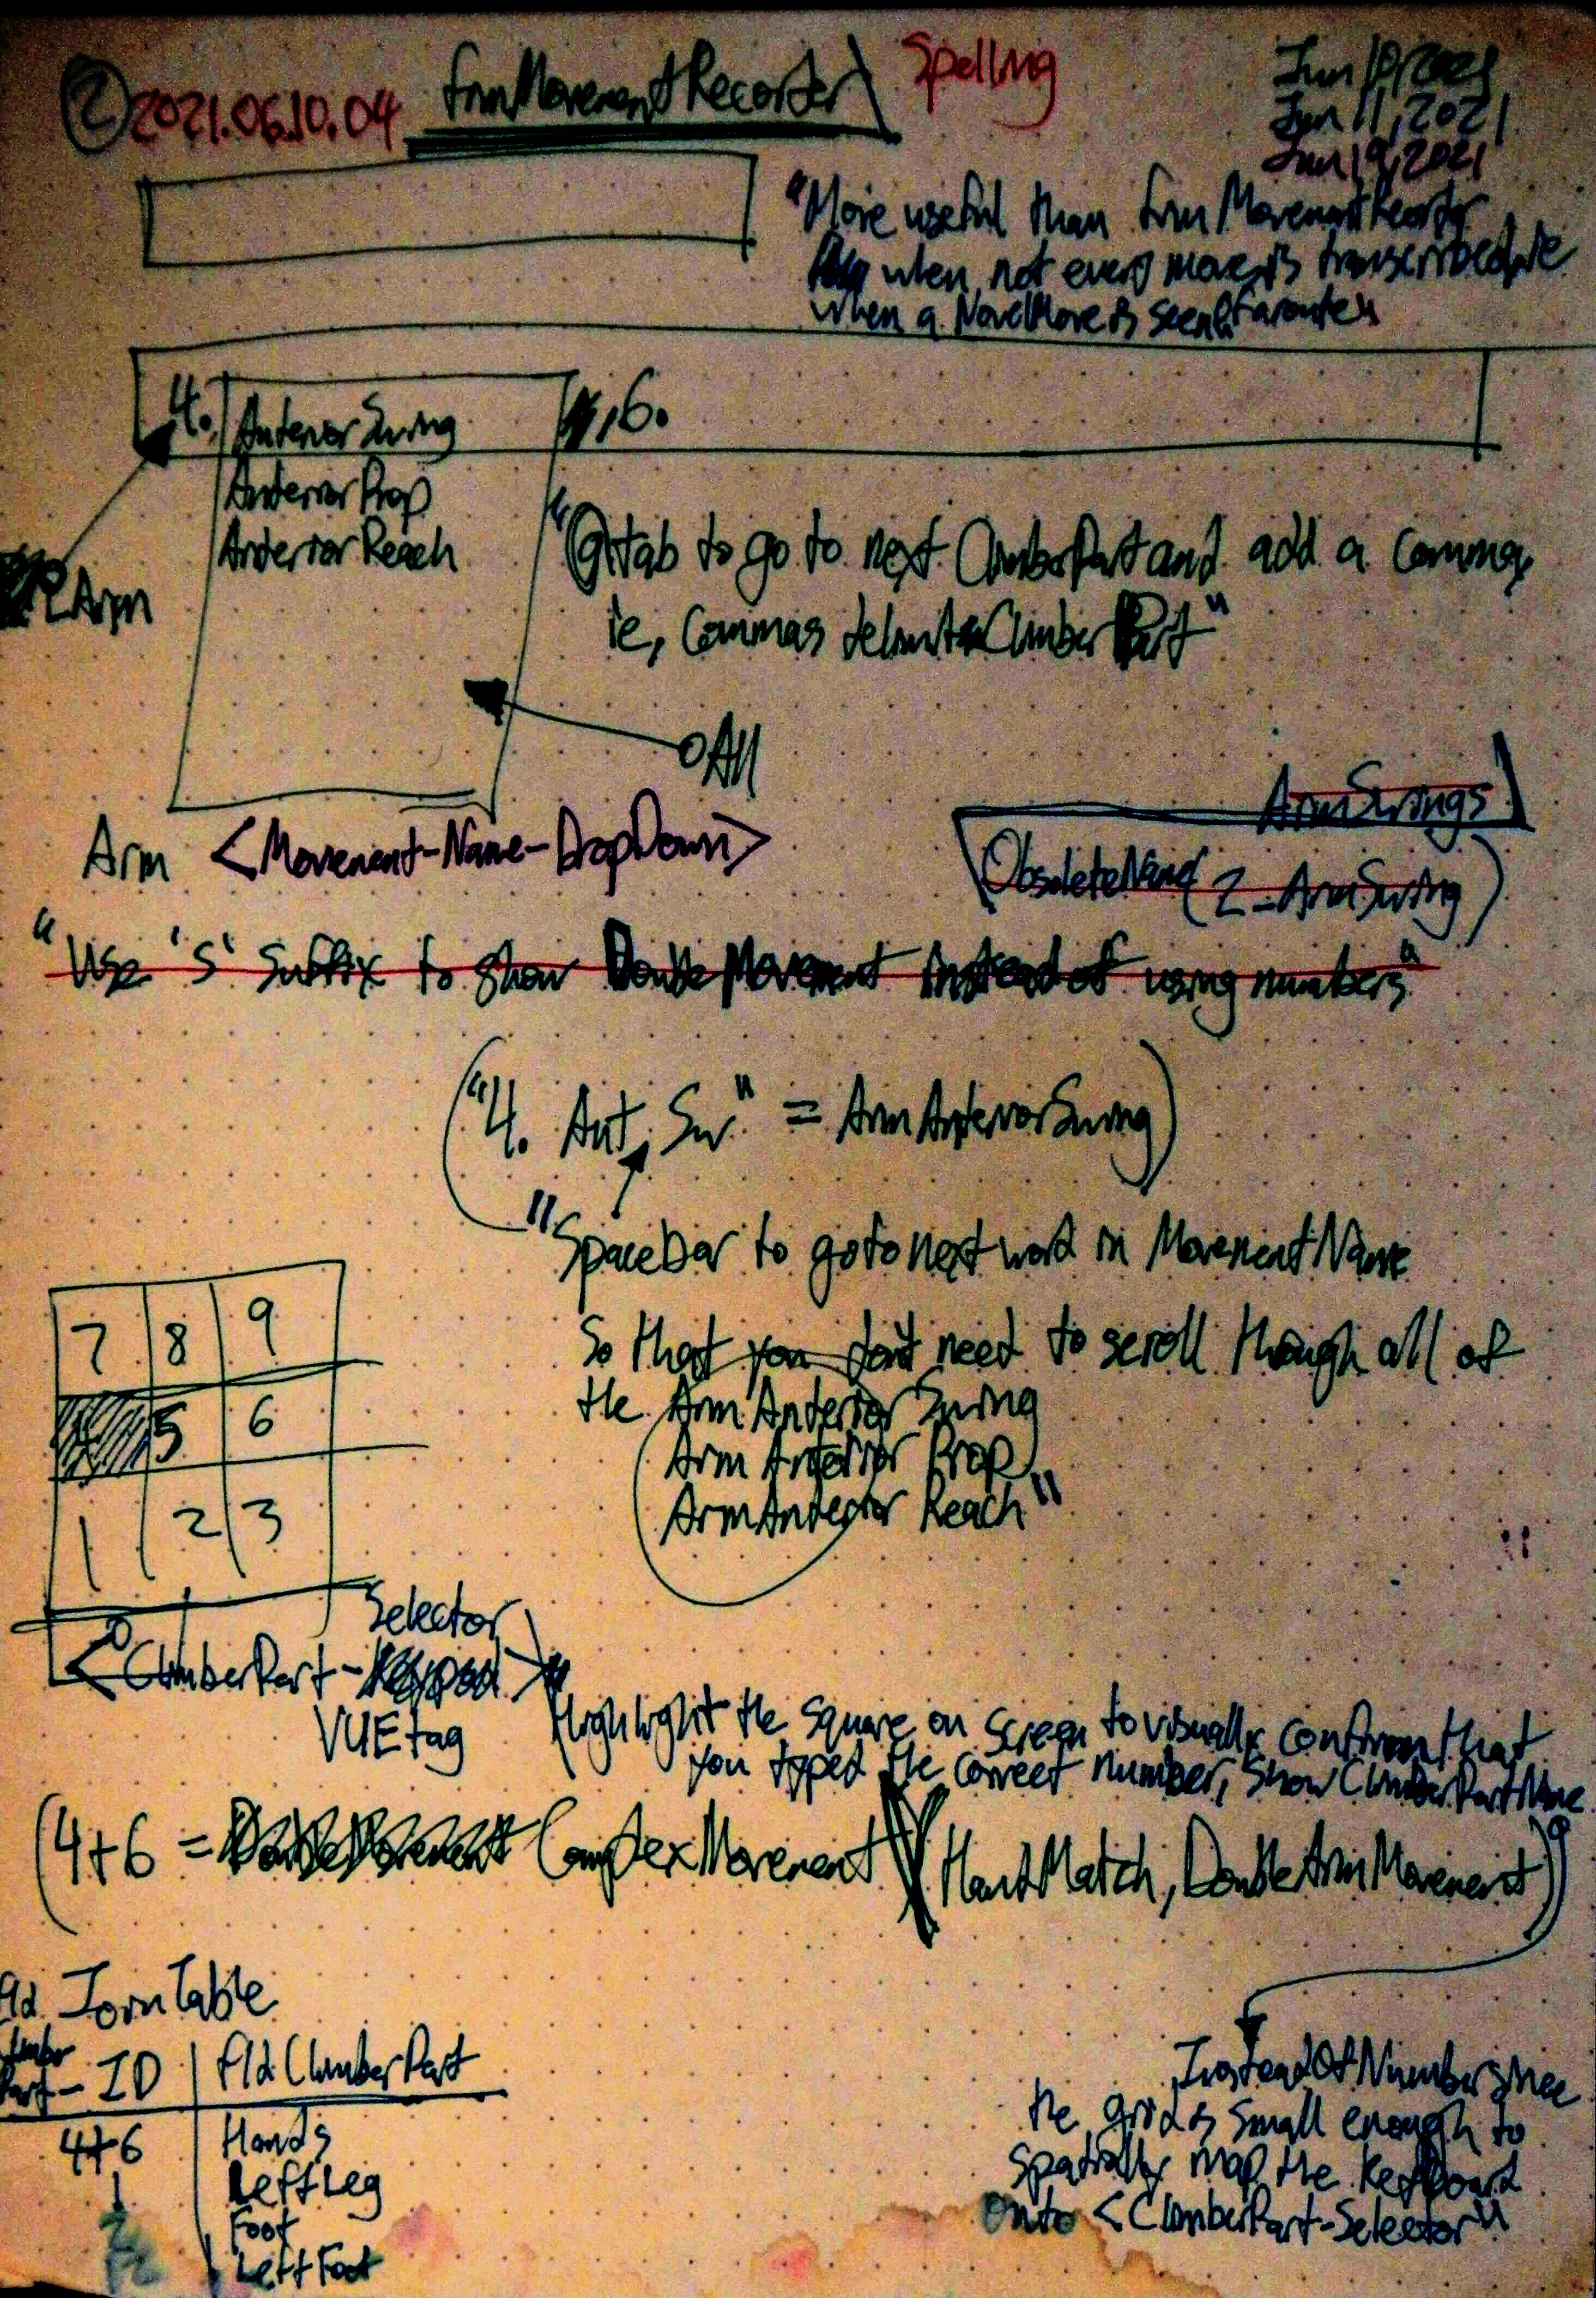 2 2021.06.10.04 frmMovementRecorder Spelling
Jun 10, 2021
Jun 11, 2021
Jun 19, 2021
"More useful than frmMovementRecorder
when not every move is transcribed, ie
when a NovelMove is seen
4. AnteriorSwing ,6.
AnteriorProp
AnteriorReach
Arm
"tab to go to next ClimberPart and add a comma,
ie, commas delimit ClimberPart"
All
ArmSwings
Arm <Movement-Name-DropDown>
ObsoleteName(2-ArmSwing)
"Use 's' suffix to show DoubleMovement instead of using numbers"
("4. Ant, Sw" = ArmAnteriorSwing)
"Spacebar to go to next word in MovementName
so that you don't need to scroll though all of
the Arm Anterior Swing
Arm Anterior Prop
Arm Anterior Reach"
7 8 9
5 6
1 2 3
Selector
<ClimberPart-Keypad>
VUE tag
"Highlight the square on screen to visually confirm that
you typed the correct number, show ClimberPartName
(4+6 = DoubleMovement ComplexMovement) (HandMatch, DoubleArmMovement)
JoinTable
Part-ID fldClimberPart
4+6 Hands
1 LeftLeg
Foot
LeftFoot
the grid is small enough to
spatially map the keyboard
onto <ClimberPart-Selector"